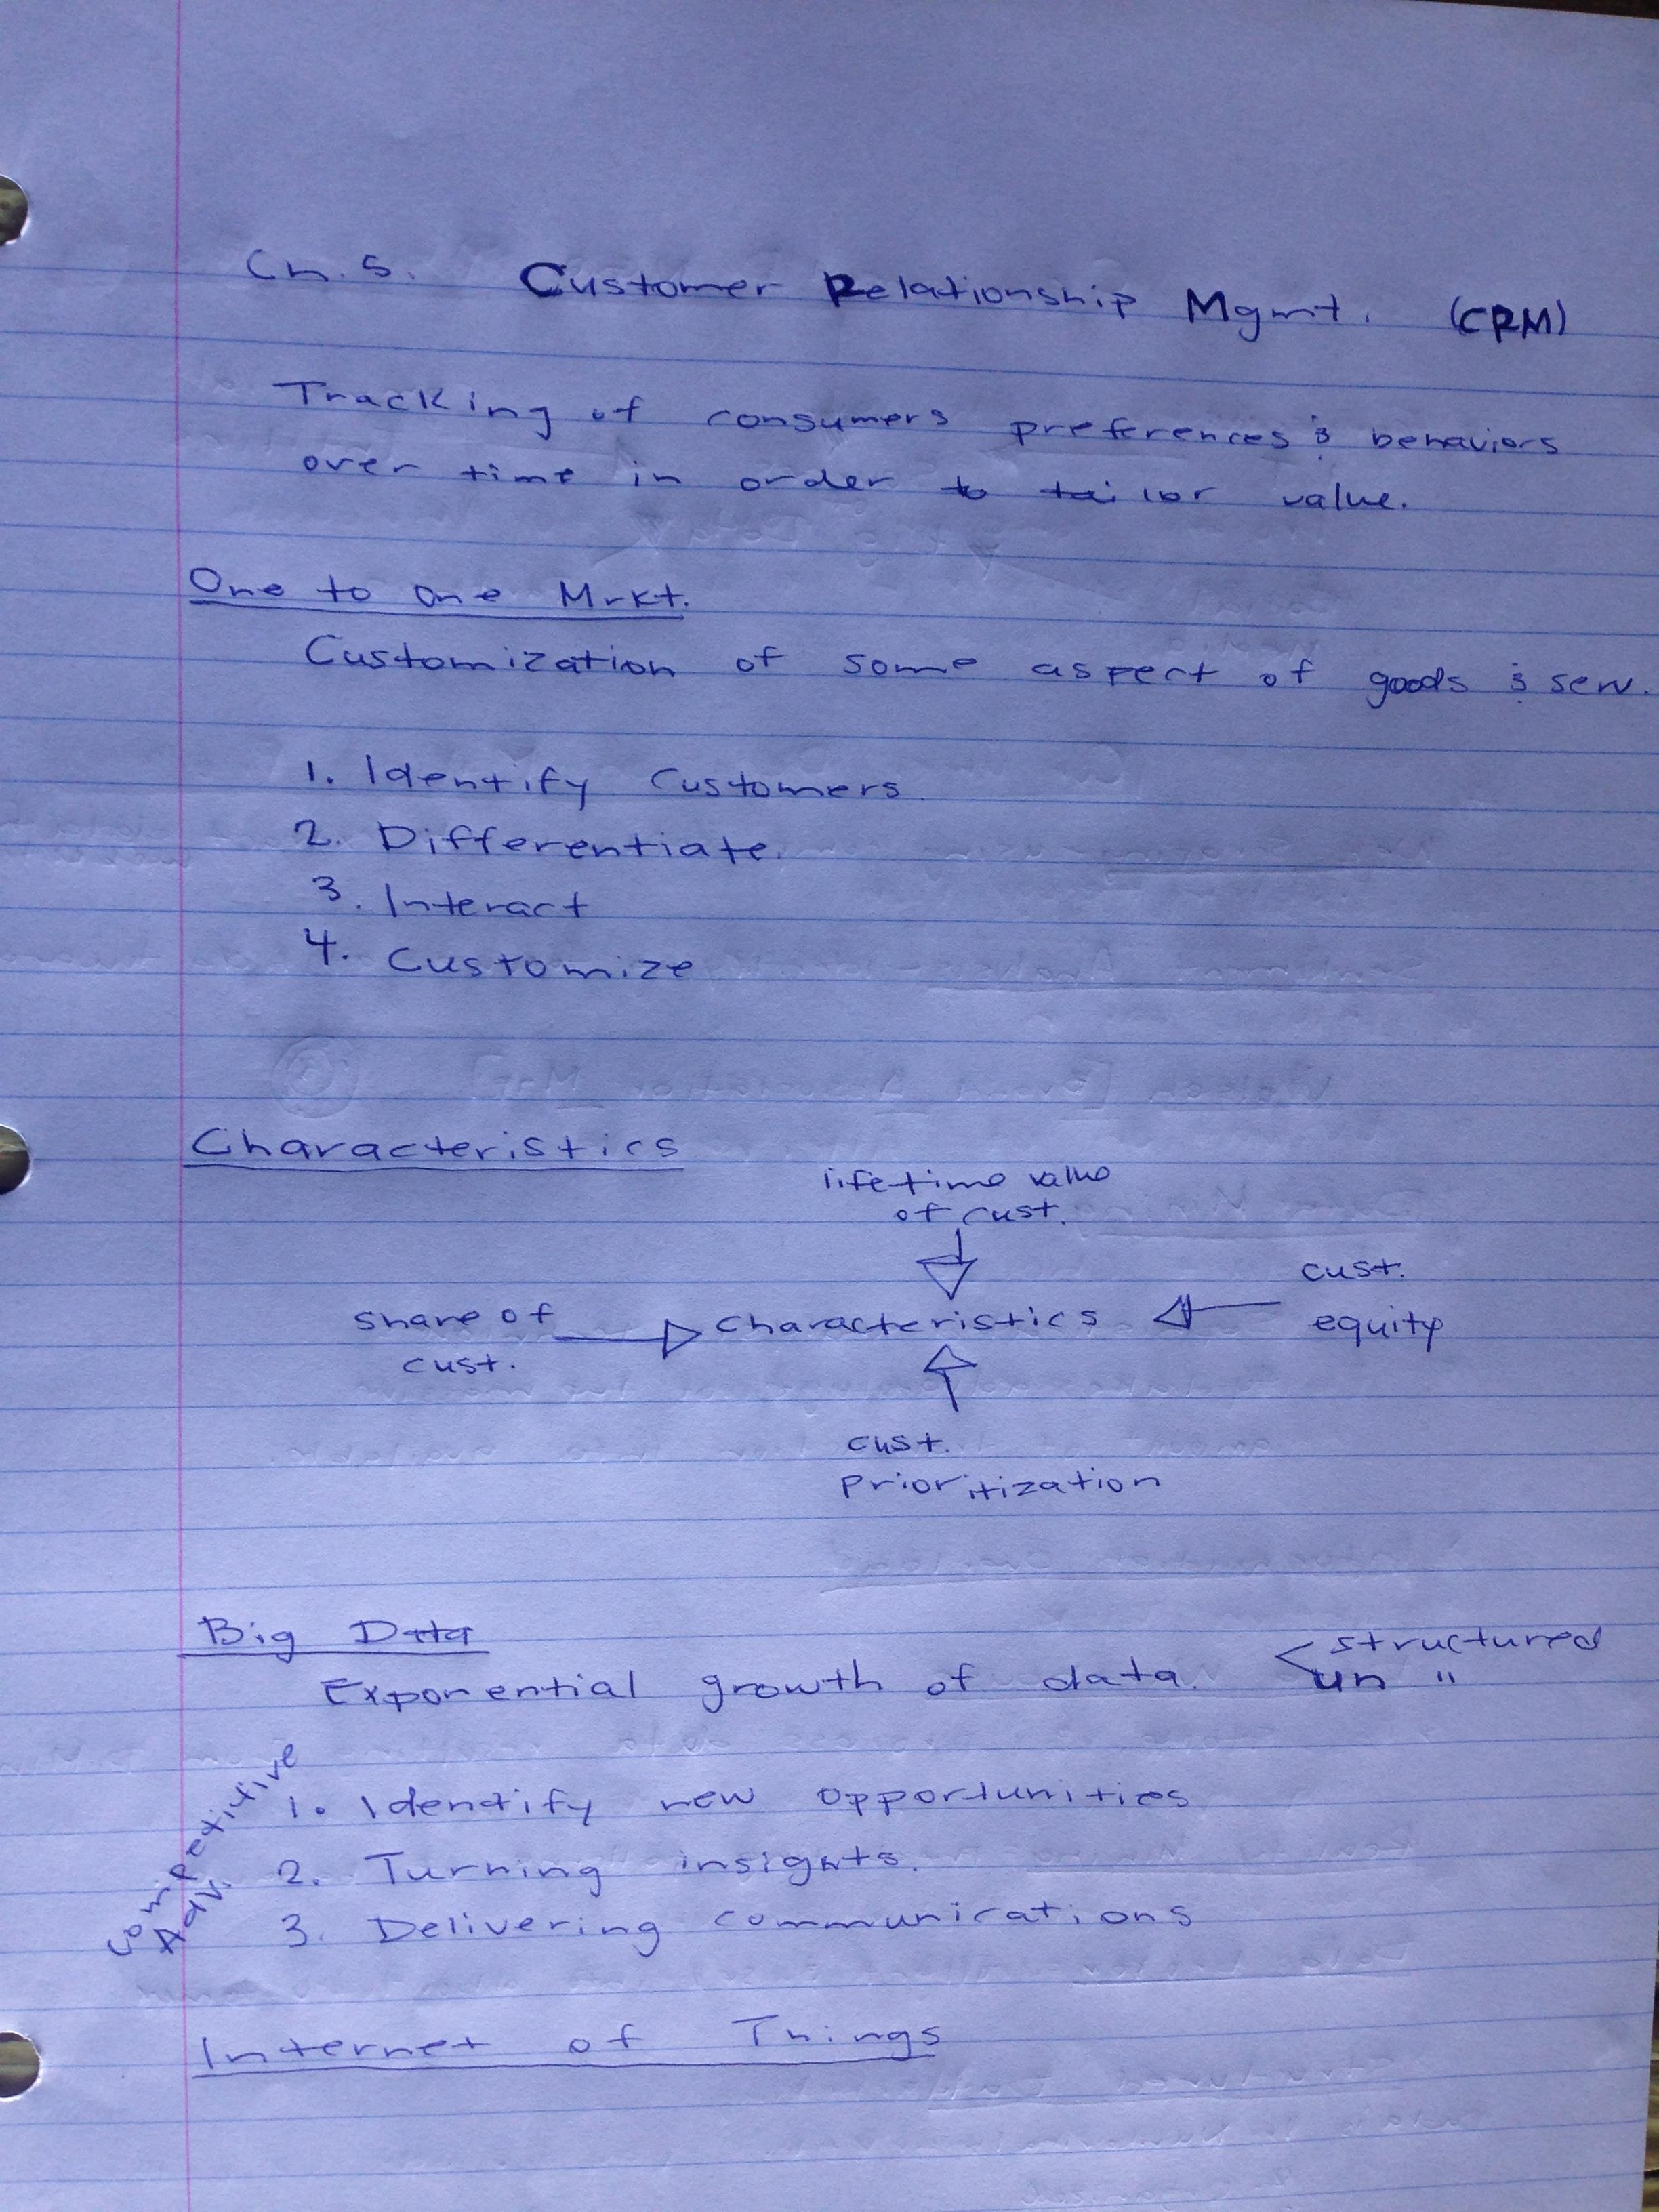 Ch. 5. Customer Relationship Mgmt. (CRM)
Tracking of consumers preferences & behaviors
over time in order to tailor value.
One to one Mrkt.
Customization of some aspect of goods & serv.
1. Identify Customers.
2. Differentiate.
3. Interact
4. Customize
Characteristics
lifetime value
of cust.
share of
cust.
Characteristics
cust.
equity
cust.
prioritization
Big Data
Exponential growth of data. < structured
un "
Competitive
Adv.
1. Identify new opportunities
2. Turning insights.
3. Delivering communications
Internet of Things